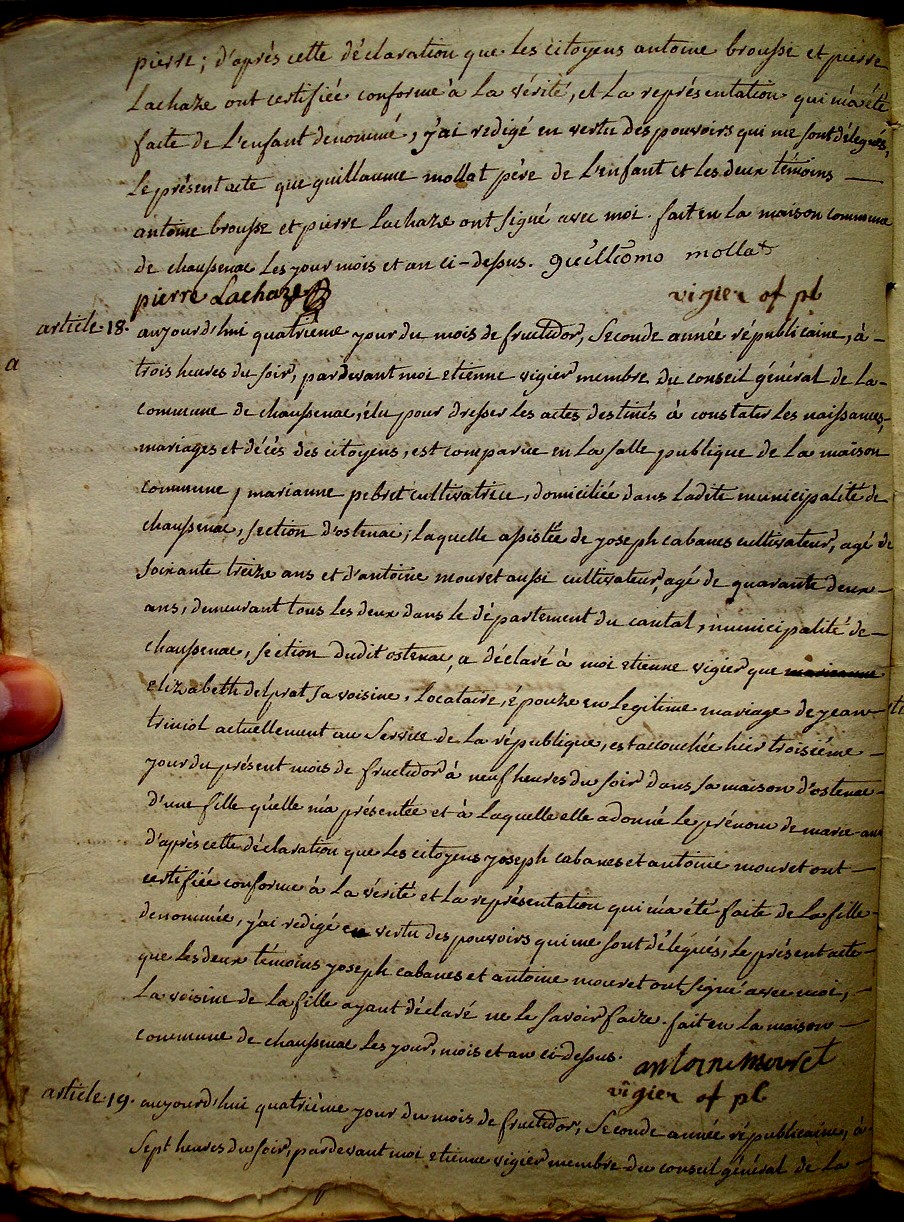 pierre; d'après cette déclaration que les citoyens antoine brousse et pierre
Lachaze ont certifiée conforme à La vérité, et La représentation qui m'a été
faite de L'enfant denommé, j'ai redigé en vertu des pouvoirs qui me sont délegués,
Le présent acte que guillaume mollat père de L'enfant et les deux témoins —
antoine brousse et pierre Lachaze ont signé avec moi. fait en La maison commune
de chaussenac Les jour mois et an ci-dessus. guilliomo mollat
pierre Lachaze vigier of pl
article 18. aujourd'hui quatrième jour du mois de fructidor, Seconde année républicaine, à -
trois heures du soir, pardevant moi etienne vigier membre du conseil général de La-
commune de chaussenac, élu pour dresser Les actes destinés à constater Les naissances,
a
mariages et décès des citoyens, est comparue en La salle publique de La maison
commune, marianne pebret cultivatrice, domiciliée dans Ladite municipalité de
chaussenac, section d'ostenac, Laquelle assistée de joseph cabanes cultivateur, agé de
soixante treize ans et d'antoine mouret aussi cultivateur, agé de quarante deux -
ans, demeurant tous Les deux dans Le département du cantal, municipalité de -
chaussenac, section dudit ostenac, a déclaré à moi etienne vigier que marianne
elizabeth delprat sa voisine, Locataire, épouze en Legitime mariage de jean
triniol actuellement au Service de La république, est accouchée hier troisième -
jour du présent mois de fructidor à neuf heures du soir dans sa maison d'ostenac -
d'une fille qu'elle m'a présentée et à Laquelle elle a donné Le prénom de marie-ann
d'après cette déclaration que Les citoyens joseph cabanes et antoine mouret ont -
certifiée conforme à La vérité et La représentation qui m'a été faite de La fille -
denommée, j'ai redigé en vertu des pouvoirs qui me sont délegués, Le présent acte -
que Les deux témoins joseph cabanes et antoine mouret ont signé avec moi, -
La voisine de La fille ayant déclaré ne Le savoir faire. fait en La maison -
commune de chaussenac Les jour, mois et an ci-dessus. antoine mouret
vigier of pl
article 19. aujourd'hui quatrième jour du mois de fructidor, Seconde année républicaine, à
Sept heures du soir, pardevant moi etienne vigier membre du conseil général de La -